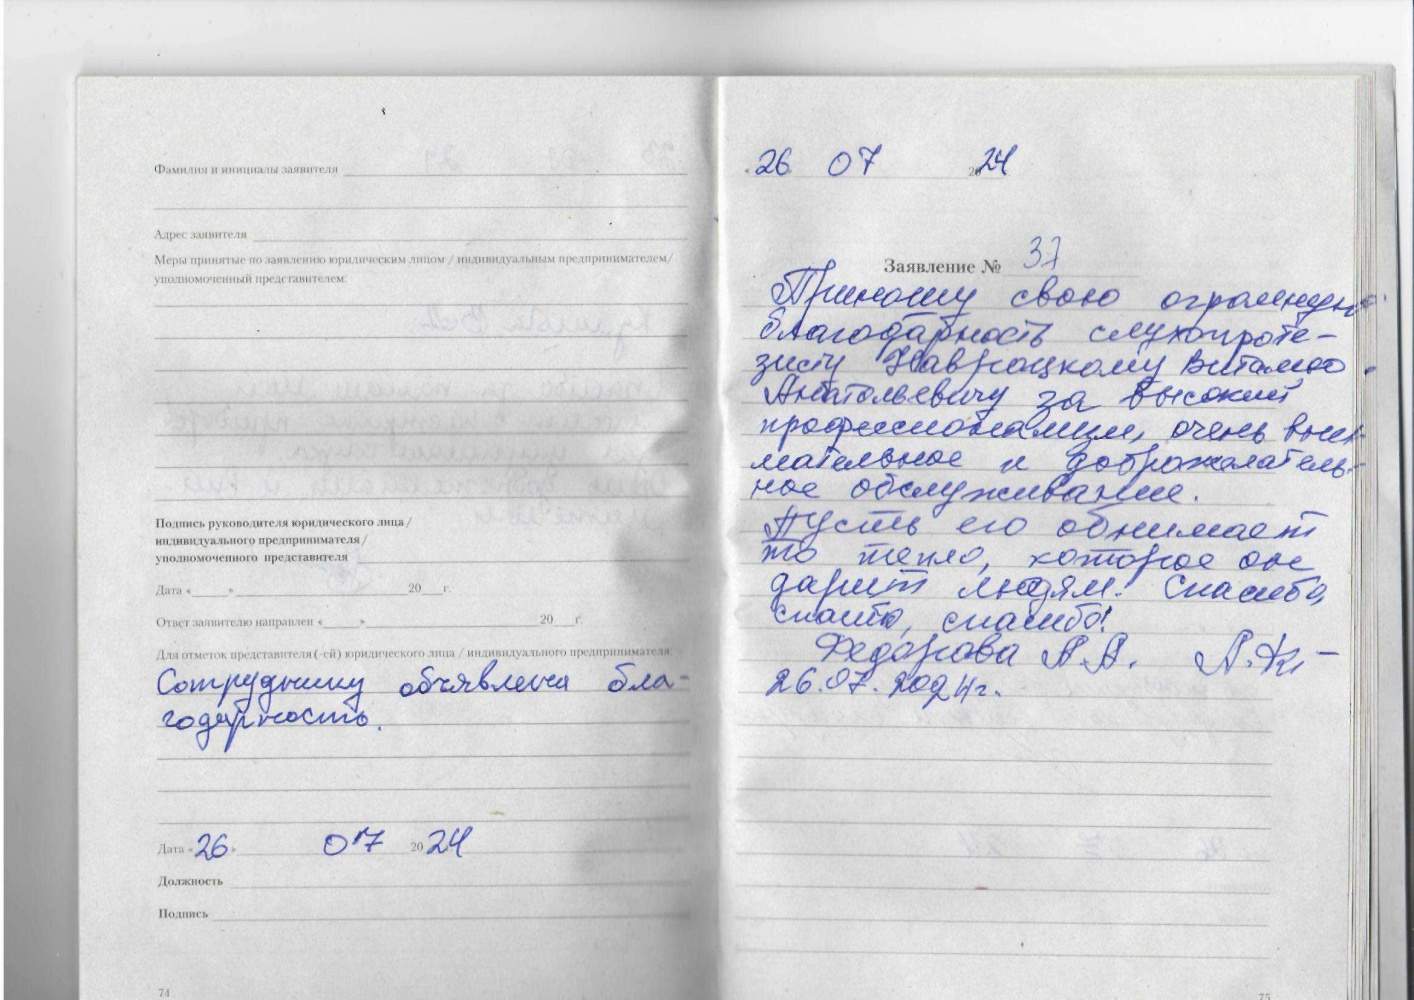 Фамилия и инициалы заявителя
Адрес заявителя
Меры принятые по заявлению юридическим лицом / индивидуальным предпринимателем/
уполномоченный представителем:
Подпись руководителя юридического лица /
индивидуального предпринимателя /
уполномоченного представителя
Дата «____» ____ 20__г.
Ответ заявителю направлен «____» ____ 20__г.
Для отметок представителя (-ей) юридического лица / индивидуального предпринимателя:
Сотруднику объявлена бла-
годарность.
Дата «26» 07 2024
Должность
Подпись
74
26 07 2024
Заявление № 37
Приношу свою огромную
благодарность слухопроте-
зисту Навроцкому Виталию
Анатольевичу за высокий
профессионализм, очень вни-
мательное и доброжелатель-
ное обслуживание.
Пусть его обнимает
то тепло, которое он
дарит людям. Спасибо,
спасибо, спасибо!
Федорова А.А.
26.07.2024г.
75